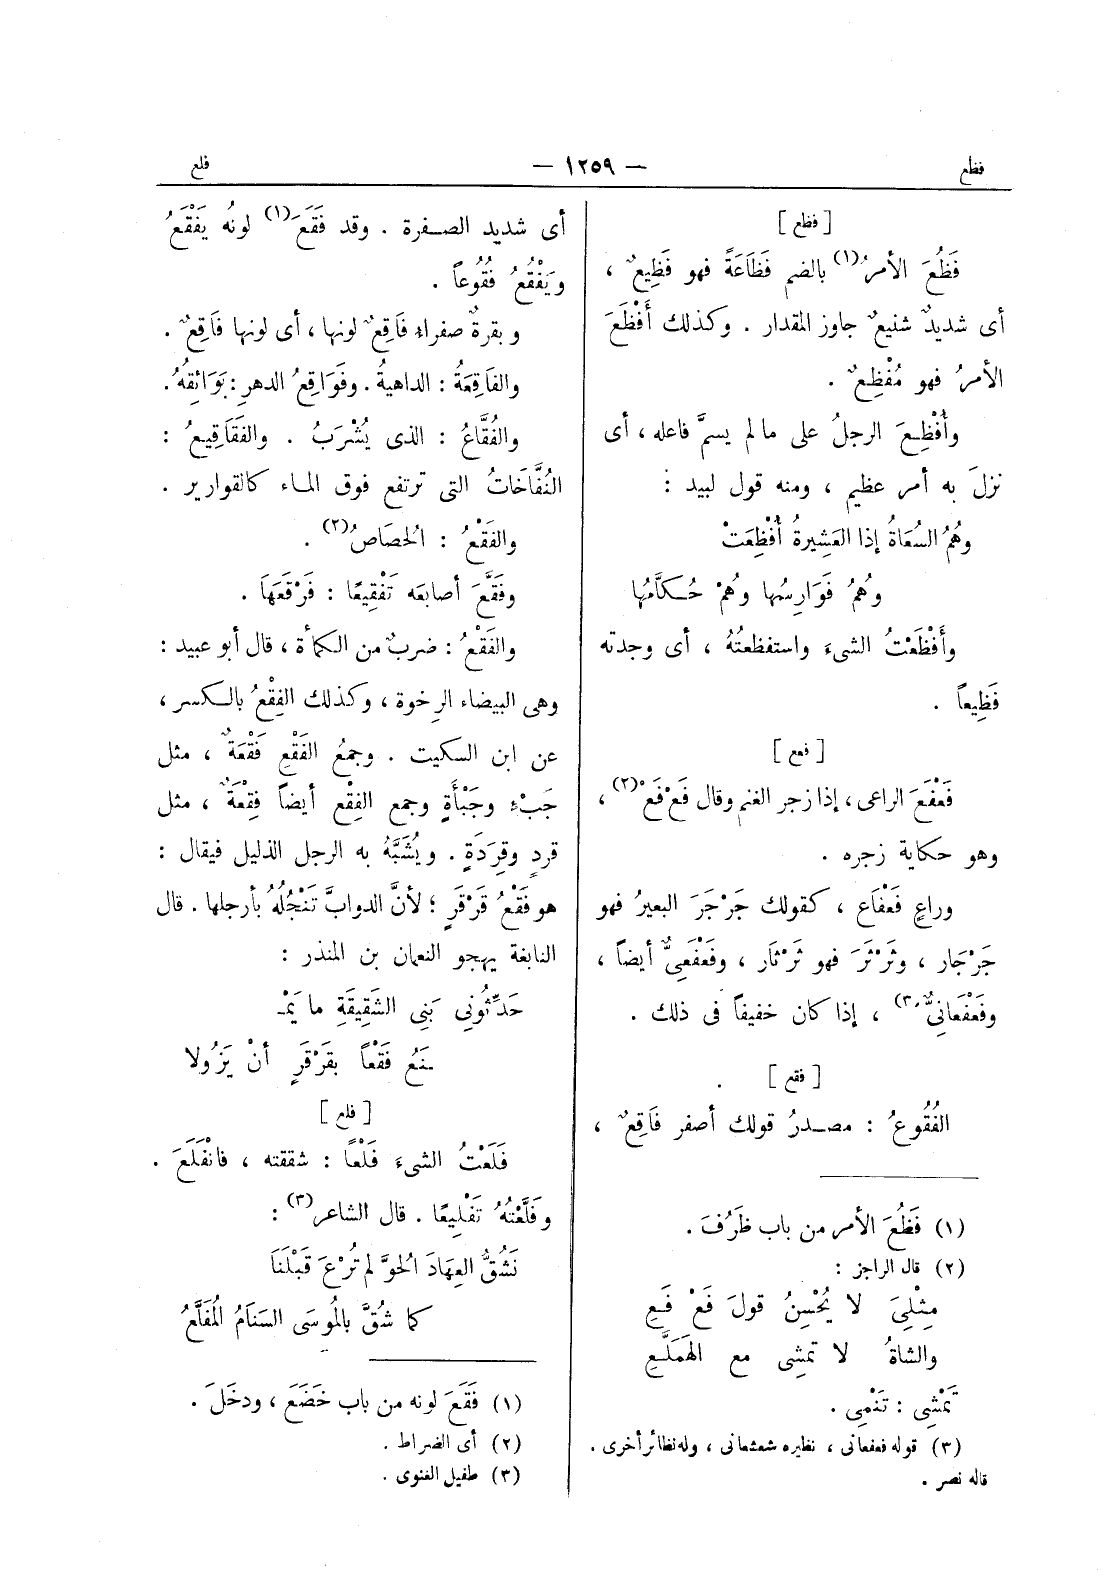 فظع
— ١٢٥٩ —
فلع
[ فظع ]
فَظُعَ الأمرُ(١) بالضم فَظَاعَةً فهو فَظِيعٌ ،
أى شديدٌ شنيعٌ جاوز المقدار . وكذلك أَفْظَعَ
الأمرُ فهو مُفْظِعٌ .
وأُفْظِعَ الرجلُ على ما لم يسمَّ فاعله ، أى
نزلَ به أمر عظيم ، ومنه قول لبيد :
وهُمُ السُعَاةُ إذا العَشِيرةُ أُفْظِعَتْ
وهُمُ فَوَارِسُها وهُمْ حُكَّامُها
وأَفْظَعْتُ الشىءَ واستفظعتُهُ ، أى وجدته
فَظِيعاً .
[ فعع ]
فَعْفَعَ الراعى ، إذا زجر الغنم وقال فَعْ فَعْ(٢) ،
وهو حكاية زجره .
وراعٍ فَعْفَاع ، كقولك جَرْجَرَ البعيرُ فهو
جَرْجَار ، وثَرْثَرَ فهو ثَرْثَار ، وفَعْفَعِىٌّ أيضاً ،
وفَعْفَعانِىٌّ(٣) ، إذا كان خفيفاً فى ذلك .
[ فقع ]
الفُقُوعُ : مصدرُ قولك أصفر فَاقِعٌ ،
(١) فَظُعَ الأمر من باب ظَرُفَ .
(٢) قال الراجز :
مِثْلِىَ لا يُحْسِنُ قولَ فَعْ فَعِ
والشاةُ لا تمشِى مع الهَمَلَّعِ
تَمْشِى : تَنْمِى .
(٣) قوله فعفعانى ، نظيره شعشعانى ، وله نظائر أخرى .
قاله نصر .
أى شديد الصفرة . وقد فَقَعَ(١) لونُه يَفْقَعُ
ويَفْقُعُ فُقُوعاً .
وبقرةٌ صفراء فَاقِعٌ لونها ، أى لونها فَاقِعٌ .
والفَاقِعَةُ : الداهيةُ . وفَوَاقِعُ الدهرِ : بَوَائِقُهُ .
والفُقَّاعُ : الذى يُشْرَبُ . والفَقَاقِيعُ :
النُفَّاخَاتُ التى ترتفع فوق الماء كالقوارير .
والفَقْعُ : الحُصَاصُ(٢) .
وفَقَّعَ أصابعَه تَفْقِيعًا : فَرْقَعَهَا .
والفَقْعُ : ضربٌ من الكمأة ، قال أبو عبيد :
وهى البيضاء الرِخوة ، وكذلك الفِقْعُ بالكسر ،
عن ابن السكيت . وجمعُ الفَقْعِ فَقْعَةٌ ، مثل
جَبْءٍ وجَبْأَةٍ وجمع الفِقْع أيضاً فِقَعَةٌ ، مثل
قردٍ وقِرَدَةٍ . ويُشَبَّهُ به الرجل الذليل فيقال :
هو فَقْعُ قَرْقَرٍ ؛ لأنَّ الدوابَّ تَنْجُلُهُ بأرجلها . قال
النابغة يهجو النعمان بن المنذر :
حَدِّثُونِى بَنِى الشَقِيقَةِ ما يَمْـ
ـنَعُ فَقْعاً بقَرْقَرٍ أنْ يَزُولا
[ فلع ]
فَلَعْتُ الشىءَ فَلْعاً : شققته ، فانْفَلَعَ .
وفَلَّعْتُهُ تَفْلِيعًا . قال الشاعر(٣) :
نَشُقُّ العِهَادَ الحُوَّ لم تُرْعَ قَبْلَنَا
كما شُقَّ بالمُوسَى السَنَامُ المُفَلَّعُ
(١) فَقَعَ لونه من باب خَضَعَ ، ودخَلَ .
(٢) أى الضراط .
(٣) طفيل الغنوى .